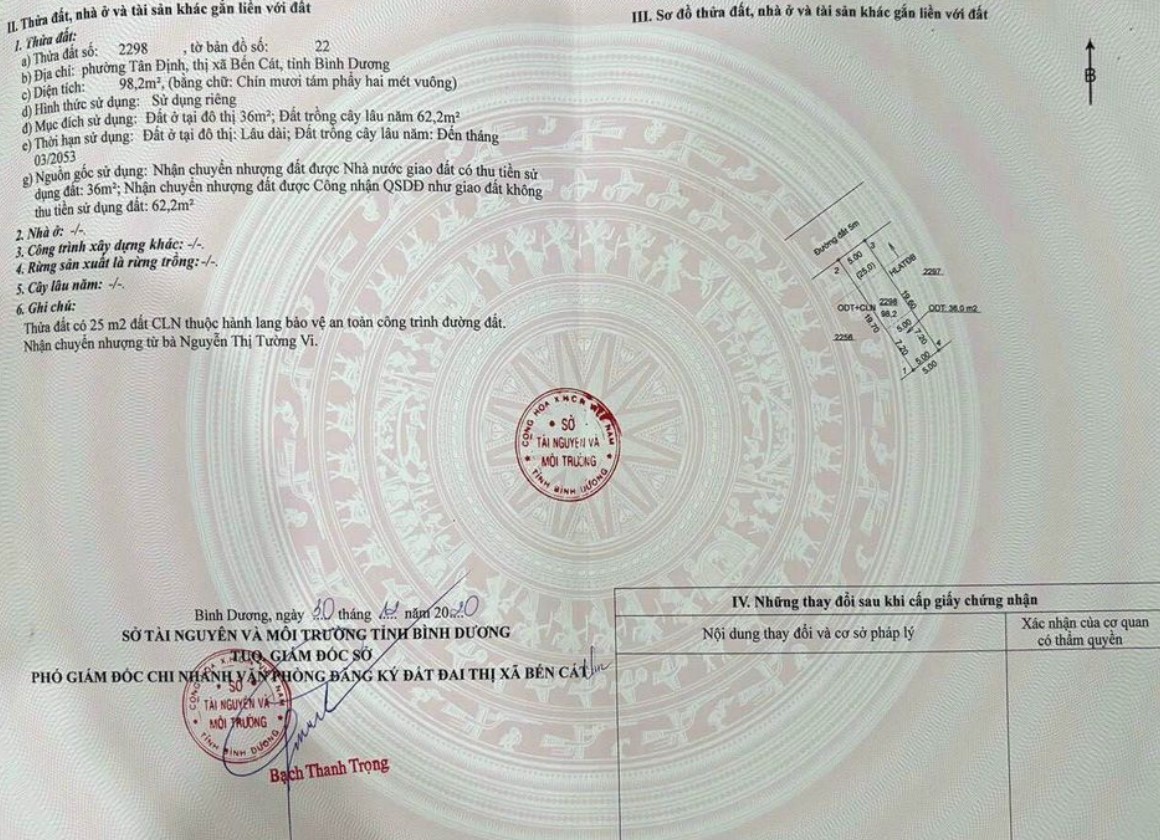 II. Thửa đất, nhà ở và tài sản khác gắn liền với đất
1. Thửa đất:
a) Thửa đất số: 2298 , tờ bản đồ số: 22
b) Địa chỉ: phường Tân Định, thị xã Bến Cát, tỉnh Bình Dương
c) Diện tích: 98,2m², (bằng chữ: Chín mươi tám phẩy hai mét vuông)
d) Hình thức sử dụng: Sử dụng riêng
đ) Mục đích sử dụng: Đất ở tại đô thị 36m²; Đất trồng cây lâu năm 62,2m²
e) Thời hạn sử dụng: Đất ở tại đô thị: Lâu dài; Đất trồng cây lâu năm: Đến tháng
03/2053
g) Nguồn gốc sử dụng: Nhận chuyển nhượng đất được Nhà nước giao đất có thu tiền sử
dụng đất: 36m²; Nhận chuyển nhượng đất được Công nhận QSDĐ như giao đất không
thu tiền sử dụng đất: 62,2m²
2. Nhà ở: -/-.
3. Công trình xây dựng khác: -/-.
4. Rừng sản xuất là rừng trồng: -/-.
5. Cây lâu năm: -/-.
6. Ghi chú:
Thửa đất có 25 m2 đất CLN thuộc hành lang bảo vệ an toàn công trình đường đất.
Nhận chuyển nhượng từ bà Nguyễn Thị Tường Vi.
Bình Dương, ngày 30 tháng năm 2020
SỞ TÀI NGUYÊN VÀ MÔI TRƯỜNG TỈNH BÌNH DƯƠNG
TUQ. GIÁM ĐỐC SỞ
PHÓ GIÁM ĐỐC CHI NHÁNH VĂN PHÒNG ĐĂNG KÝ ĐẤT ĐAI THỊ XÃ BẾN CÁT
CỘNG HÒA XHCN VIỆT NAM
SỞ
TÀI NGUYÊN VÀ
MÔI TRƯỜNG
TỈNH BÌNH DƯƠNG
Bạch Thanh Trọng
CỘNG HÒA XHCN VIỆT NAM
SỞ
TÀI NGUYÊN VÀ
MÔI TRƯỜNG
TỈNH BÌNH DƯƠNG
III. Sơ đồ thửa đất, nhà ở và tài sản khác gắn liền với đất
B
Đường đất 5m
2
5.00
3
(25,0)
HLATĐB
2297
19.60
ODT+CLN
2298
98,2
ODT: 36.0 m2
19.70
5.00
7.20
2256
7.20
4
5.00
1
5.00
IV. Những thay đổi sau khi cấp giấy chứng nhận
Nội dung thay đổi và cơ sở pháp lý
Xác nhận của cơ quan
có thẩm quyền